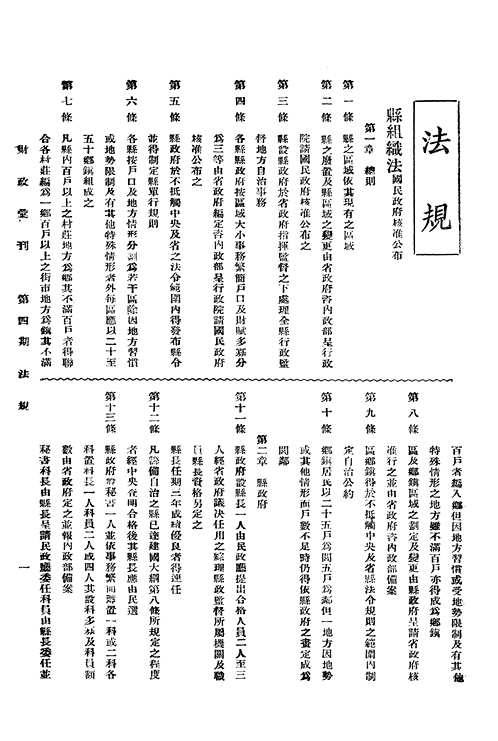 法規
縣組織法國民政府核准公布
第一章 總則
第一條 縣之區域依其現有之區域
第二條 縣之廢置及縣區域之變更由省政府咨內政部呈行政
院請國民政府核准公布之
第三條 縣設縣政府於省政府指揮監督之下處理全縣行政監
督地方自治事務
第四條 各縣縣政府按區域大小事務繁簡戶口及財賦多寡分
為三等由省政府編定咨內政部呈行政院請國民政府
核准公布之
第五條 縣政府於不抵觸中央及省之法令範圍內得發布縣令
並得制定縣單行規則
第六條 各縣按戶口及地方情形分劃為若干區除因地方習慣
或地勢限制及有其他特殊情形者外每區應以二十至
五十鄉鎮組成之
第七條 凡縣內百戶以上之村莊地方為鄉其不滿百戶者得聯
合各村莊編為一鄉百戶以上之街市地方為鎮其不滿
百戶者編入鄉但因地方習慣或受地勢限制及有其他
特殊情形之地方雖不滿百戶亦得成為鄉鎮
第八條 區及鄉鎮區域之劃定及變更由縣政府呈請省政府核
准行之並由省政府咨內政部備案
第九條 區鄉鎮得於不抵觸中央及省縣法令規則之範圍內制
定自治公約
第十條 鄉鎮居民以二十五戶為閭五戶為鄰但一地方因地勢
或其他情形而戶數不足時仍得依縣政府之畫定成為
閭鄰
第二章 縣政府
第十一條 縣政府設縣長一人由民政廳提出合格人員二人至三
人經省政府議決任用之綜理縣政監督所屬機關及職
員縣長資格另定之
縣長任期三年成績優良者得連任
第十二條 凡籌備自治之縣已達建國大綱第八條所規定之程度
者經中央查明合格後其縣長應由民選
第十三條 縣政府設秘書一人並依事務繁簡設置一科或二科各
科置科長一人科員二人或四人其設科多寡及科員額
數由省政府定之並報內政部備案
秘書科長由縣長呈請民政廳委任科員由縣長委任並
財政彙刊 第四期 法規 一